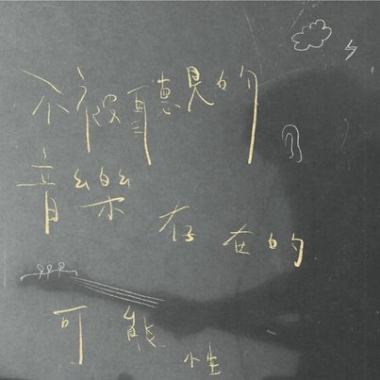 不被聽見的
音樂存在的
可能性